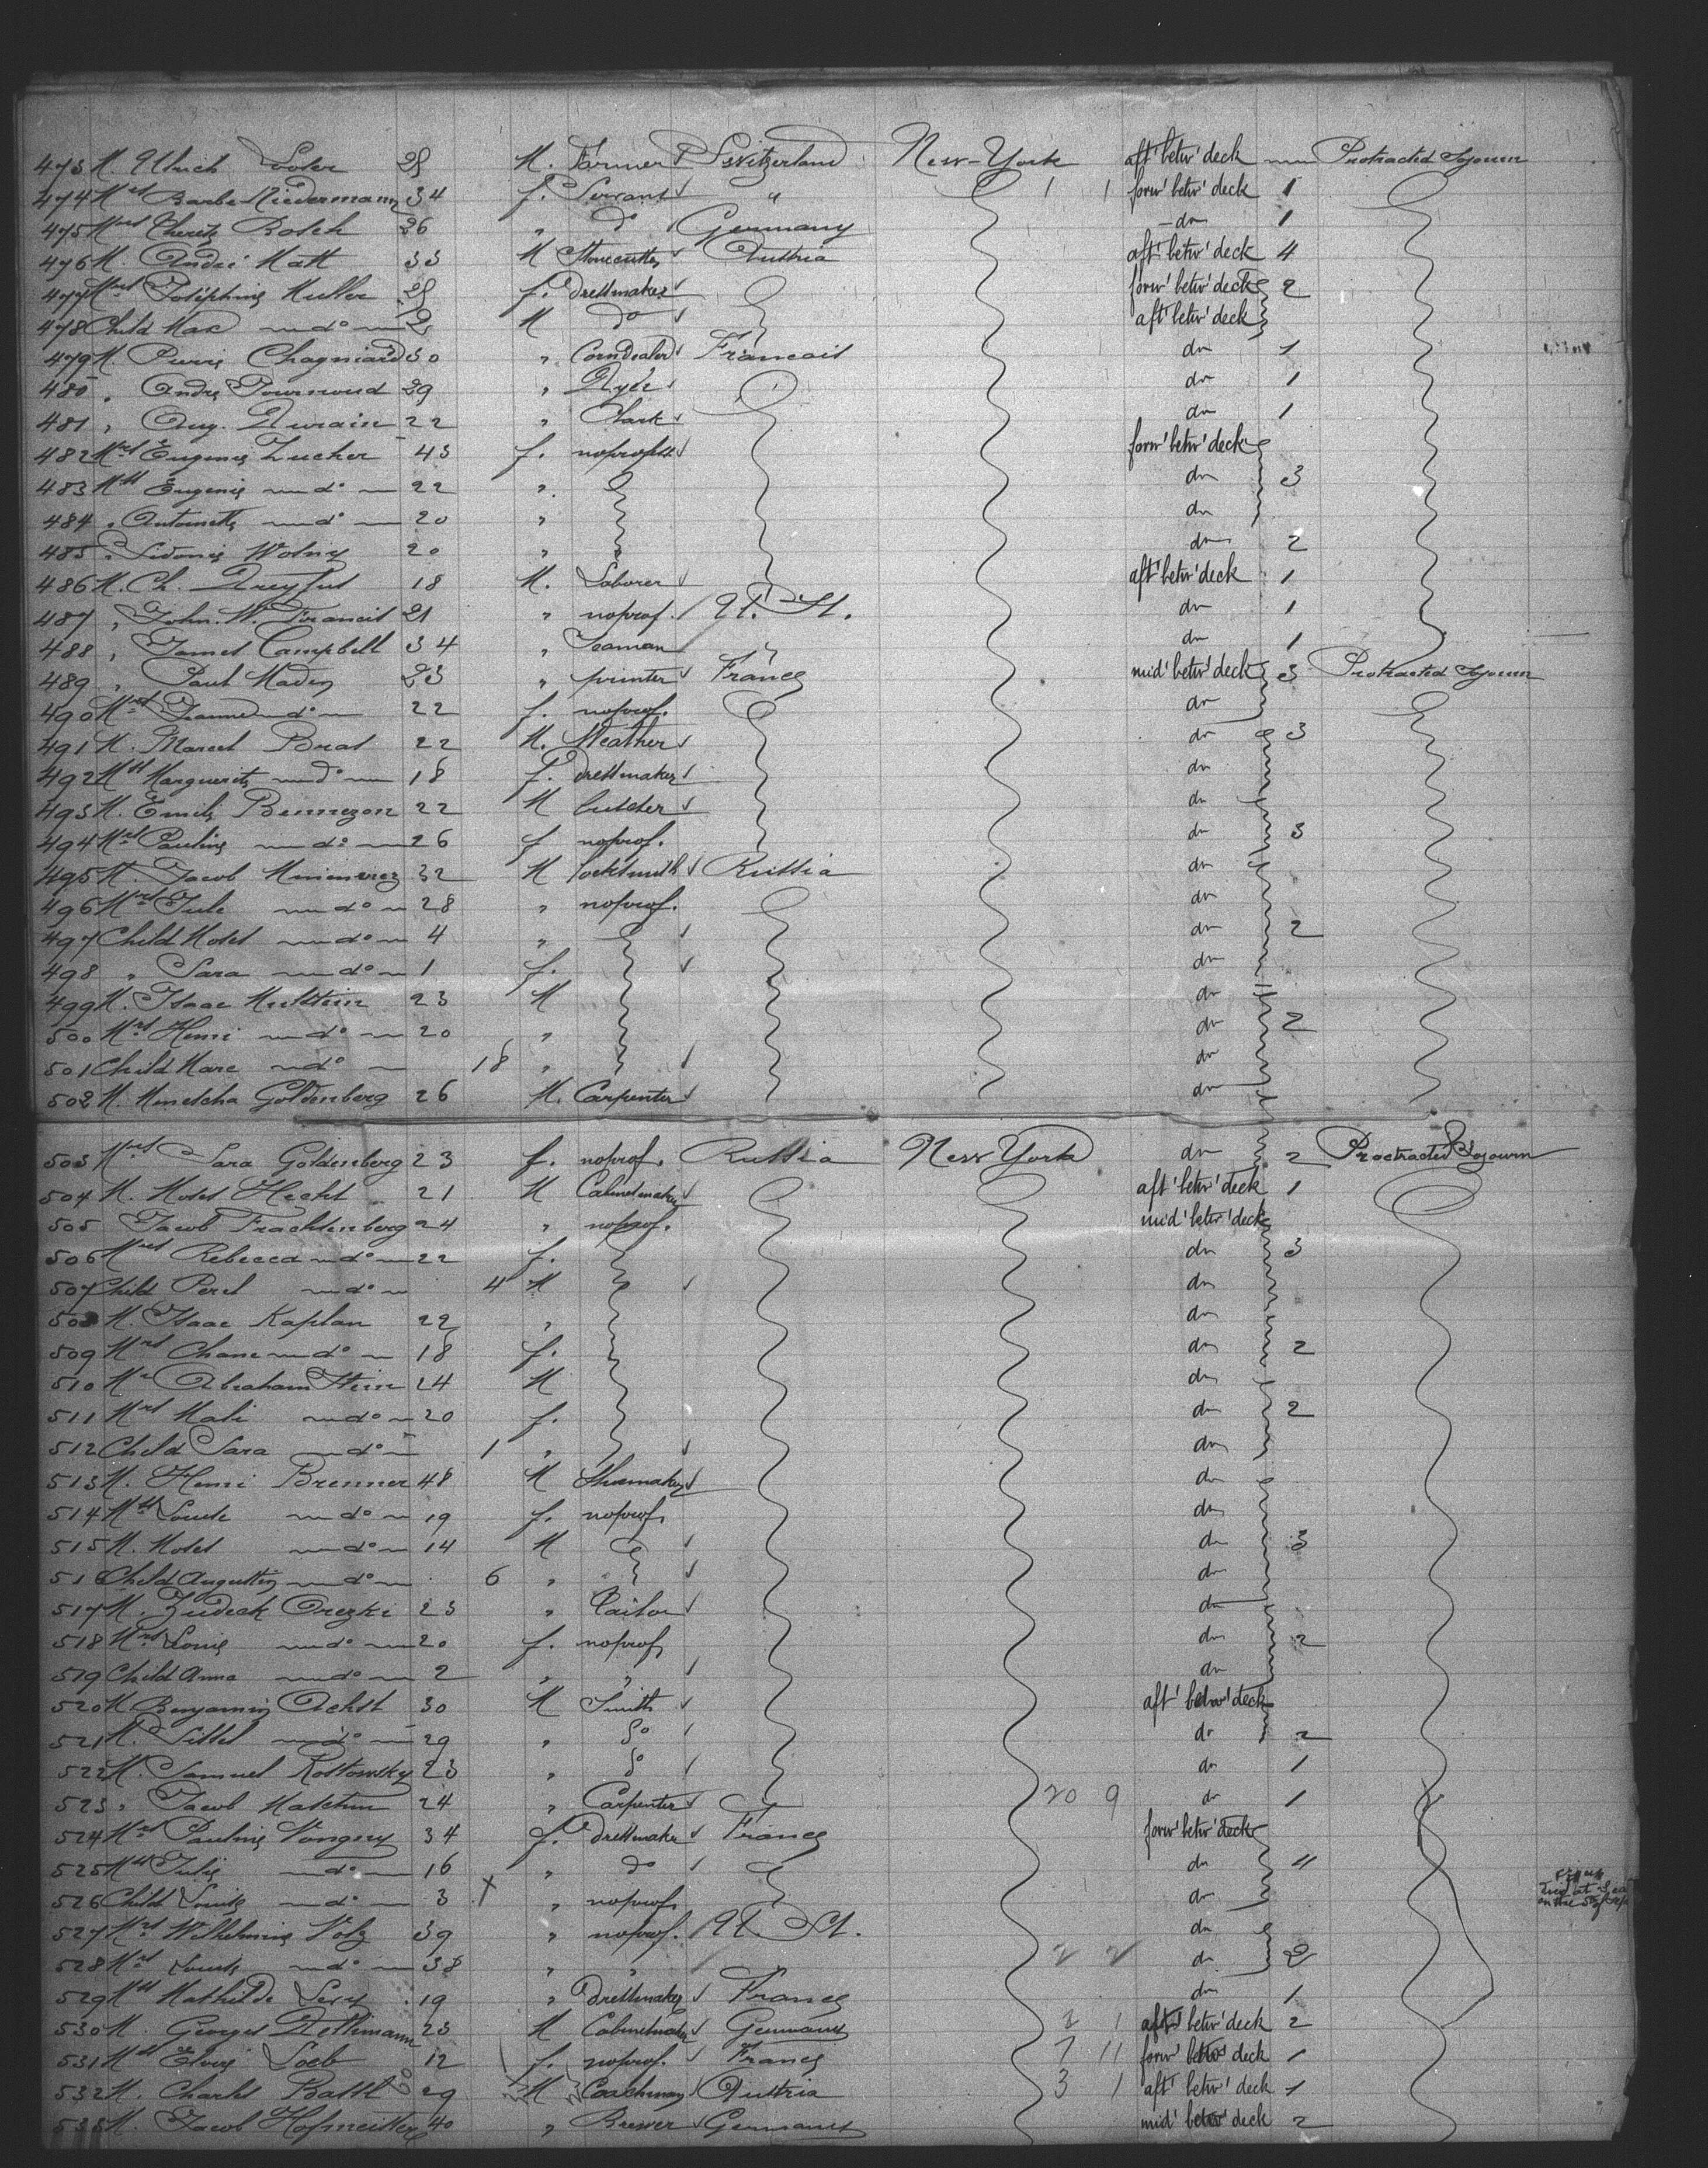 473 M. Ulrich 28 M. Farmer Switzerland New-York aft' betw' deck Protracted Sojourn
474 Mrs Barbe Niedermann 34 f. Servant " 1 1 forw' betw' deck 1
475 Mrs Rosch 26 " do Germany do 1
476 M. André Matt 33 M Stonecutter Austria aft' betw' deck 4
477 Mrs Joséphine Muller 28 f. dressmaker forw' betw' deck 2
478 Child Max do 2 M do aft' betw' deck
479 M. Pierre Chagniard 30 " Corndealer Francais do 1
480 " André Tournoud 29 " Dyer do 1
481 " Aug. Durain 22 " Clark do 1
482 Mrs Eugenie Zucher 43 f. noprofess forw' betw' deck
483 Mll Eugenie do 22 " do 3
484 " Antoinette do 20 " do
485 " Sidonie Wolny 20 " do 2
486 M. Ch. Dreyfus 18 M. Laborer aft' betw' deck 1
487 " John. W. Francis 21 " noprof. U. St. do 1
488 " James Campbell 34 " Seaman " do 1
489 " Paul Madey 23 " printer France mid' betw' deck 3 Protracted Sojourn
490 Mrs Jeanne do 22 f. noprof. do
491 M. Marcel Brat 22 M. do 3
492 Mll Marguerite do 18 f. dressmaker do
493 M. Emile Bennezon 22 M butcher do
494 Mrs Pauline do 26 f noprof. do 3
495 M. Jacob 32 M locksmith Russia do
496 Mrs Jule do 28 " noprof. do
497 Child Motel do 4 " do 2
498 " Sara do 1 f. do
499 M. Isaac Mulstein 23 M do
500 Mrs Henri do 20 " do 2
501 Child Marc do 18 " do
502 M. Mendcha Goldenberg 26 M. Carpenter do
503 Mrs Sara Goldenberg 23 f. noprof. Russia New York do 2 Protracted Sojourn
504 M. Motel Hecht 21 M Cabinetmaker aft' betw' deck 1
505 Jacob Frachtenberg 24 " noprof. mid' betw' deck
506 Mrs Rebecca do 22 f. do 3
507 Child Perel do 4 M do
508 M. Isaac Kaplan 22 " do
509 Mrs Chane do 18 f. do 2
510 Mr Abraham Stein 24 M do
511 Mrs Mali do 20 f. do 2
512 Child Sara do 1 " do
513 M. Henri Brenner 48 M Shoemaker do
514 Mll Louise do 19 f. noprof. do
515 M. Motel do 14 M do 3
516 Child Augustin do 6 " do
517 M. Zudeck Orezki 23 " Tailor do
518 Mrs Louis do 20 f. noprof. do 2
519 Child Anna do 2 " " do
520 M Benjamin Achst 30 M Smith aft' betw' deck
521 M. Sittel do 29 " do do 2
522 M. Samuel Rostowsky 23 " do do 1
523 " Jacob Matchin 24 " Carpenter 20 9 do 1
524 Mrs Pauline Vongny 34 f. dressmaker France forw' betw' deck
525 Mll Julie do 16 " do do 4
526 Child Louise do 3 X " noprof. do died at Sea on the
527 Mrs Wilhelmine Volz 39 " noprof. U. St. do
528 Mrs Louise do 38 " " 2 2 do 2
529 Mll Mathilde Levy 19 " Dressmaker France do 1
530 M. Georges Dethmann 23 M Cabinetmaker Germany 2 1 aft' betw' deck 2
531 Mll Elvire Loeb 12 f. noprof. France 7 11 forw' betw' deck 1
532 M. Charles Battl 29 M Coachman Austria 3 1 aft' betw' deck 1
533 M. Jacob Hofmeister 40 " Brewer Germany mid' betw' deck 2